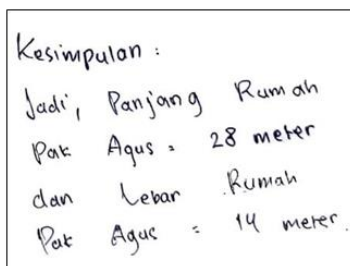 Kesimpulan :
Jadi, Panjang Rumah
Pak Agus = 28 meter
dan Lebar Rumah
Pak Agus = 14 meter.